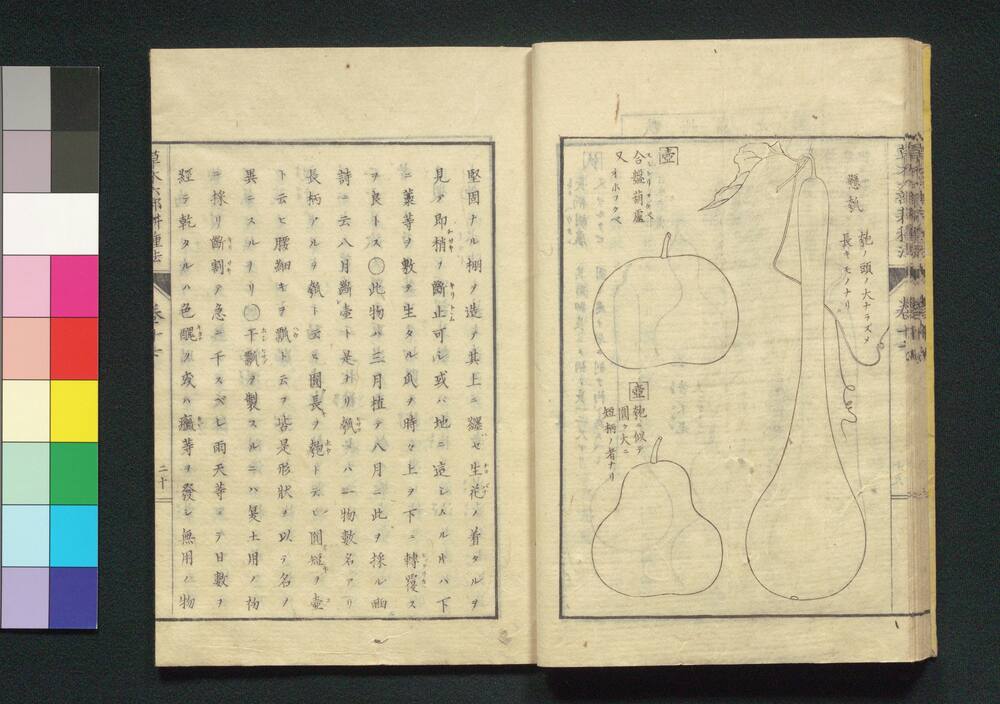 懸瓠
匏ノ頭ノ大ナラズメ
長キモノナリ
壺
合盤葫蘆
又オホフクベ
壺
匏ニ似テ
圓ク大ニ
短柄ノ者ナリ
堅固ナル棚ヲ造テ其上ニ纏セ生花ノ着タルヲ
見テ即梢ヲ斷止可レ或バ地ニ這レムルトハ下
ニ藁等ヲ數テ生タル瓜ヲ時々上ヲ下ニ轉覆ス
ヲ良トス 此物バ三月植テ八月ニ此ヲ採ル
詩ニ云八月斷壺ト是ナリ瓠バ一物數名アリ
長柄アルヲ瓠ト云ヒ圓長ヲ匏ト云ヒ圓短ヲ壺
ト云ヒ腰細キヲ瓢ト云フ皆是形狀ヲ以テ名ノ
異ニスルナリ 干瓢ヲ製スルニハ夏土用ノ
ニ採リ斷割テ急ニ干スベレ雨天等ニテ日數ヲ
經テ乾タルハ色ヲ或ハ等ヲ發レ無用ノ物
草木六部耕種法
二十